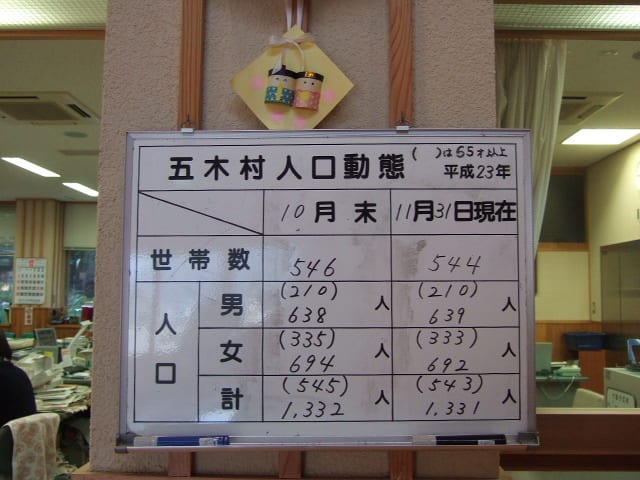 五木村人口動態 ( )は65才以上
平成23年
10月 末 11月31日現在
世帯数 546 544
人口 男 (210) 638 人 (210) 639 人
女 (335) 694 人 (333) 692 人
計 (545) 1,332 人 (543) 1,331 人